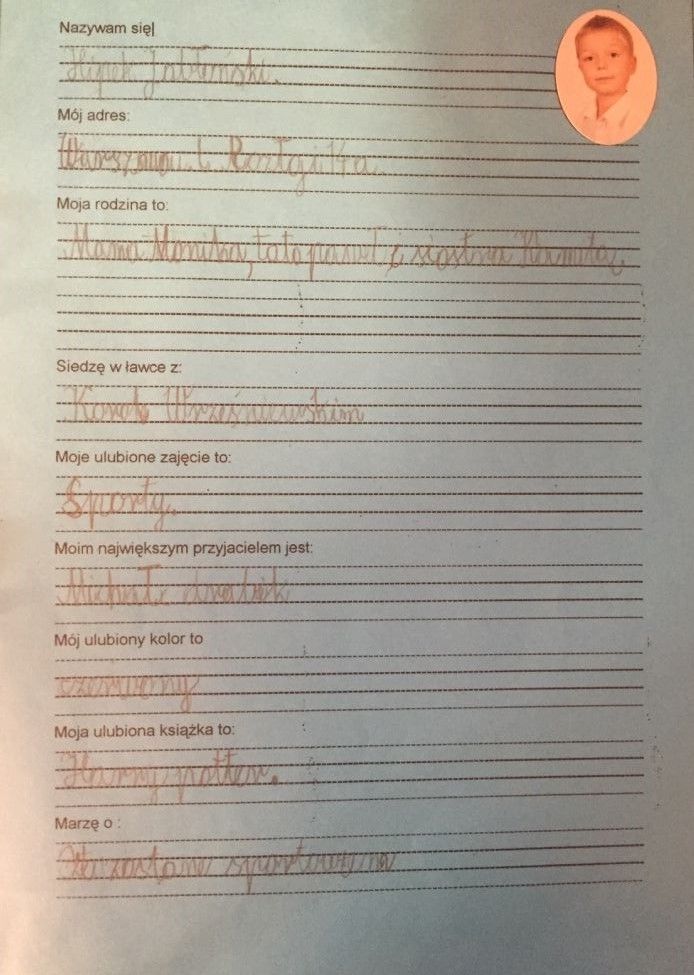 Nazywam się
Hipek Jabłoński.
Mój adres:
Warszawa
Moja rodzina to:
Mama Monika, tata paweł i siostra Kamila
Siedzę w ławce z:
Wrześniewskim
Moje ulubione zajęcie to:
Sporty.
Moim największym przyjacielem jest:
Michał
Mój ulubiony kolor to
czerwony
Moja ulubiona książka to:
Harry potter.
Marzę o :